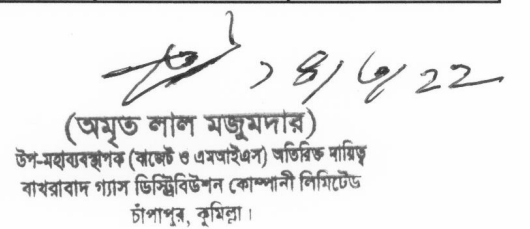 ১৪/৬/22
(অমৃত লাল মজুমদার)
উপ-মহাব্যবস্থাপক (বাজেট ও এমআইএস) অতিরিক্ত দায়িত্ব
বাখরাবাদ গ্যাস ডিস্ট্রিবিউশন কোম্পানী লিমিটেড
চাঁপাপুর, কুমিল্লা।